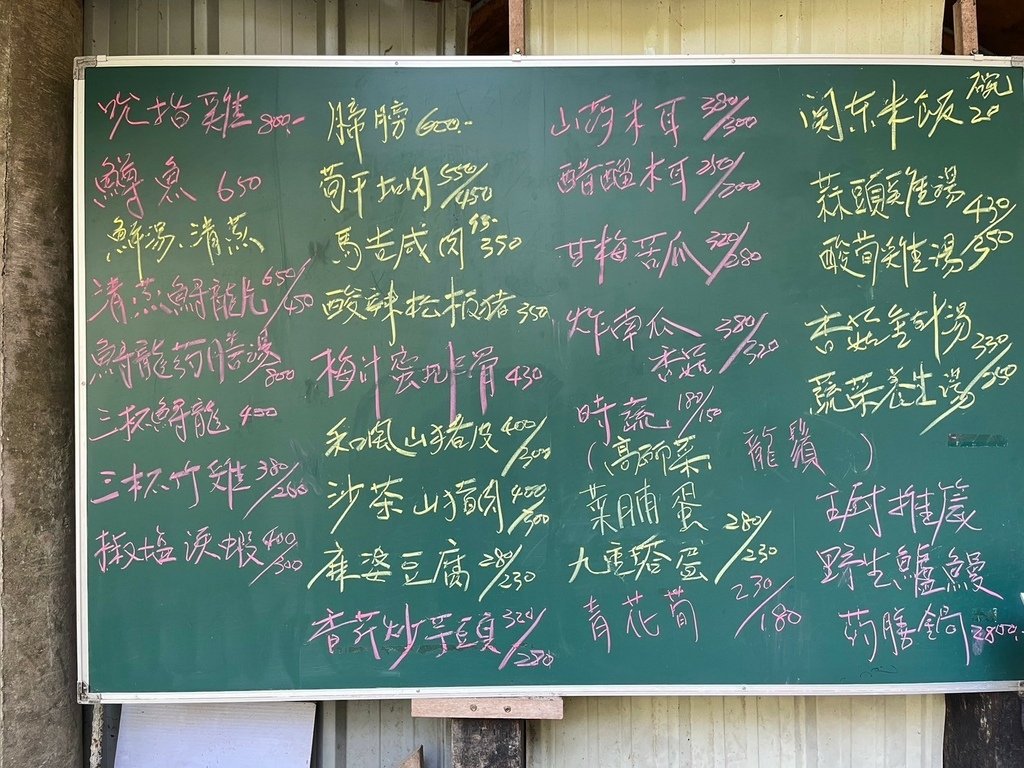 吮指雞 800.-
鱒魚 650
鮮湯.清蒸
清蒸鱘龍片 650/450
鱘龍药膳湯 800
三杯鱘龍 400
三杯竹雞 380/260
椒塩溪蝦 400/300
蹄膀 600.-
筍干北肉 550/450
馬告咸肉 350
酸辣松板猪 350
梅汁蜜 排骨 430
和風山猪皮 400/300
沙茶山猪肉 400/300
麻婆豆腐 280/230
香芹炒芋頭 320/280
山药木耳 380/300
醋醃木耳 250/200
甘梅苦瓜 320/280
炸南瓜
香菇 380/320
時蔬 180/150
(高丽菜 龍鬚)
菜脯蛋
九層塔蛋 280/230
青花筍 230/180
関东米飯 碗20
蒜頭雞湯 430/350
酸筍雞湯
香菇金針湯 330
蔬菜養生湯 /250
主厨推薦
野生鱸鰻
药膳鍋 2800.-